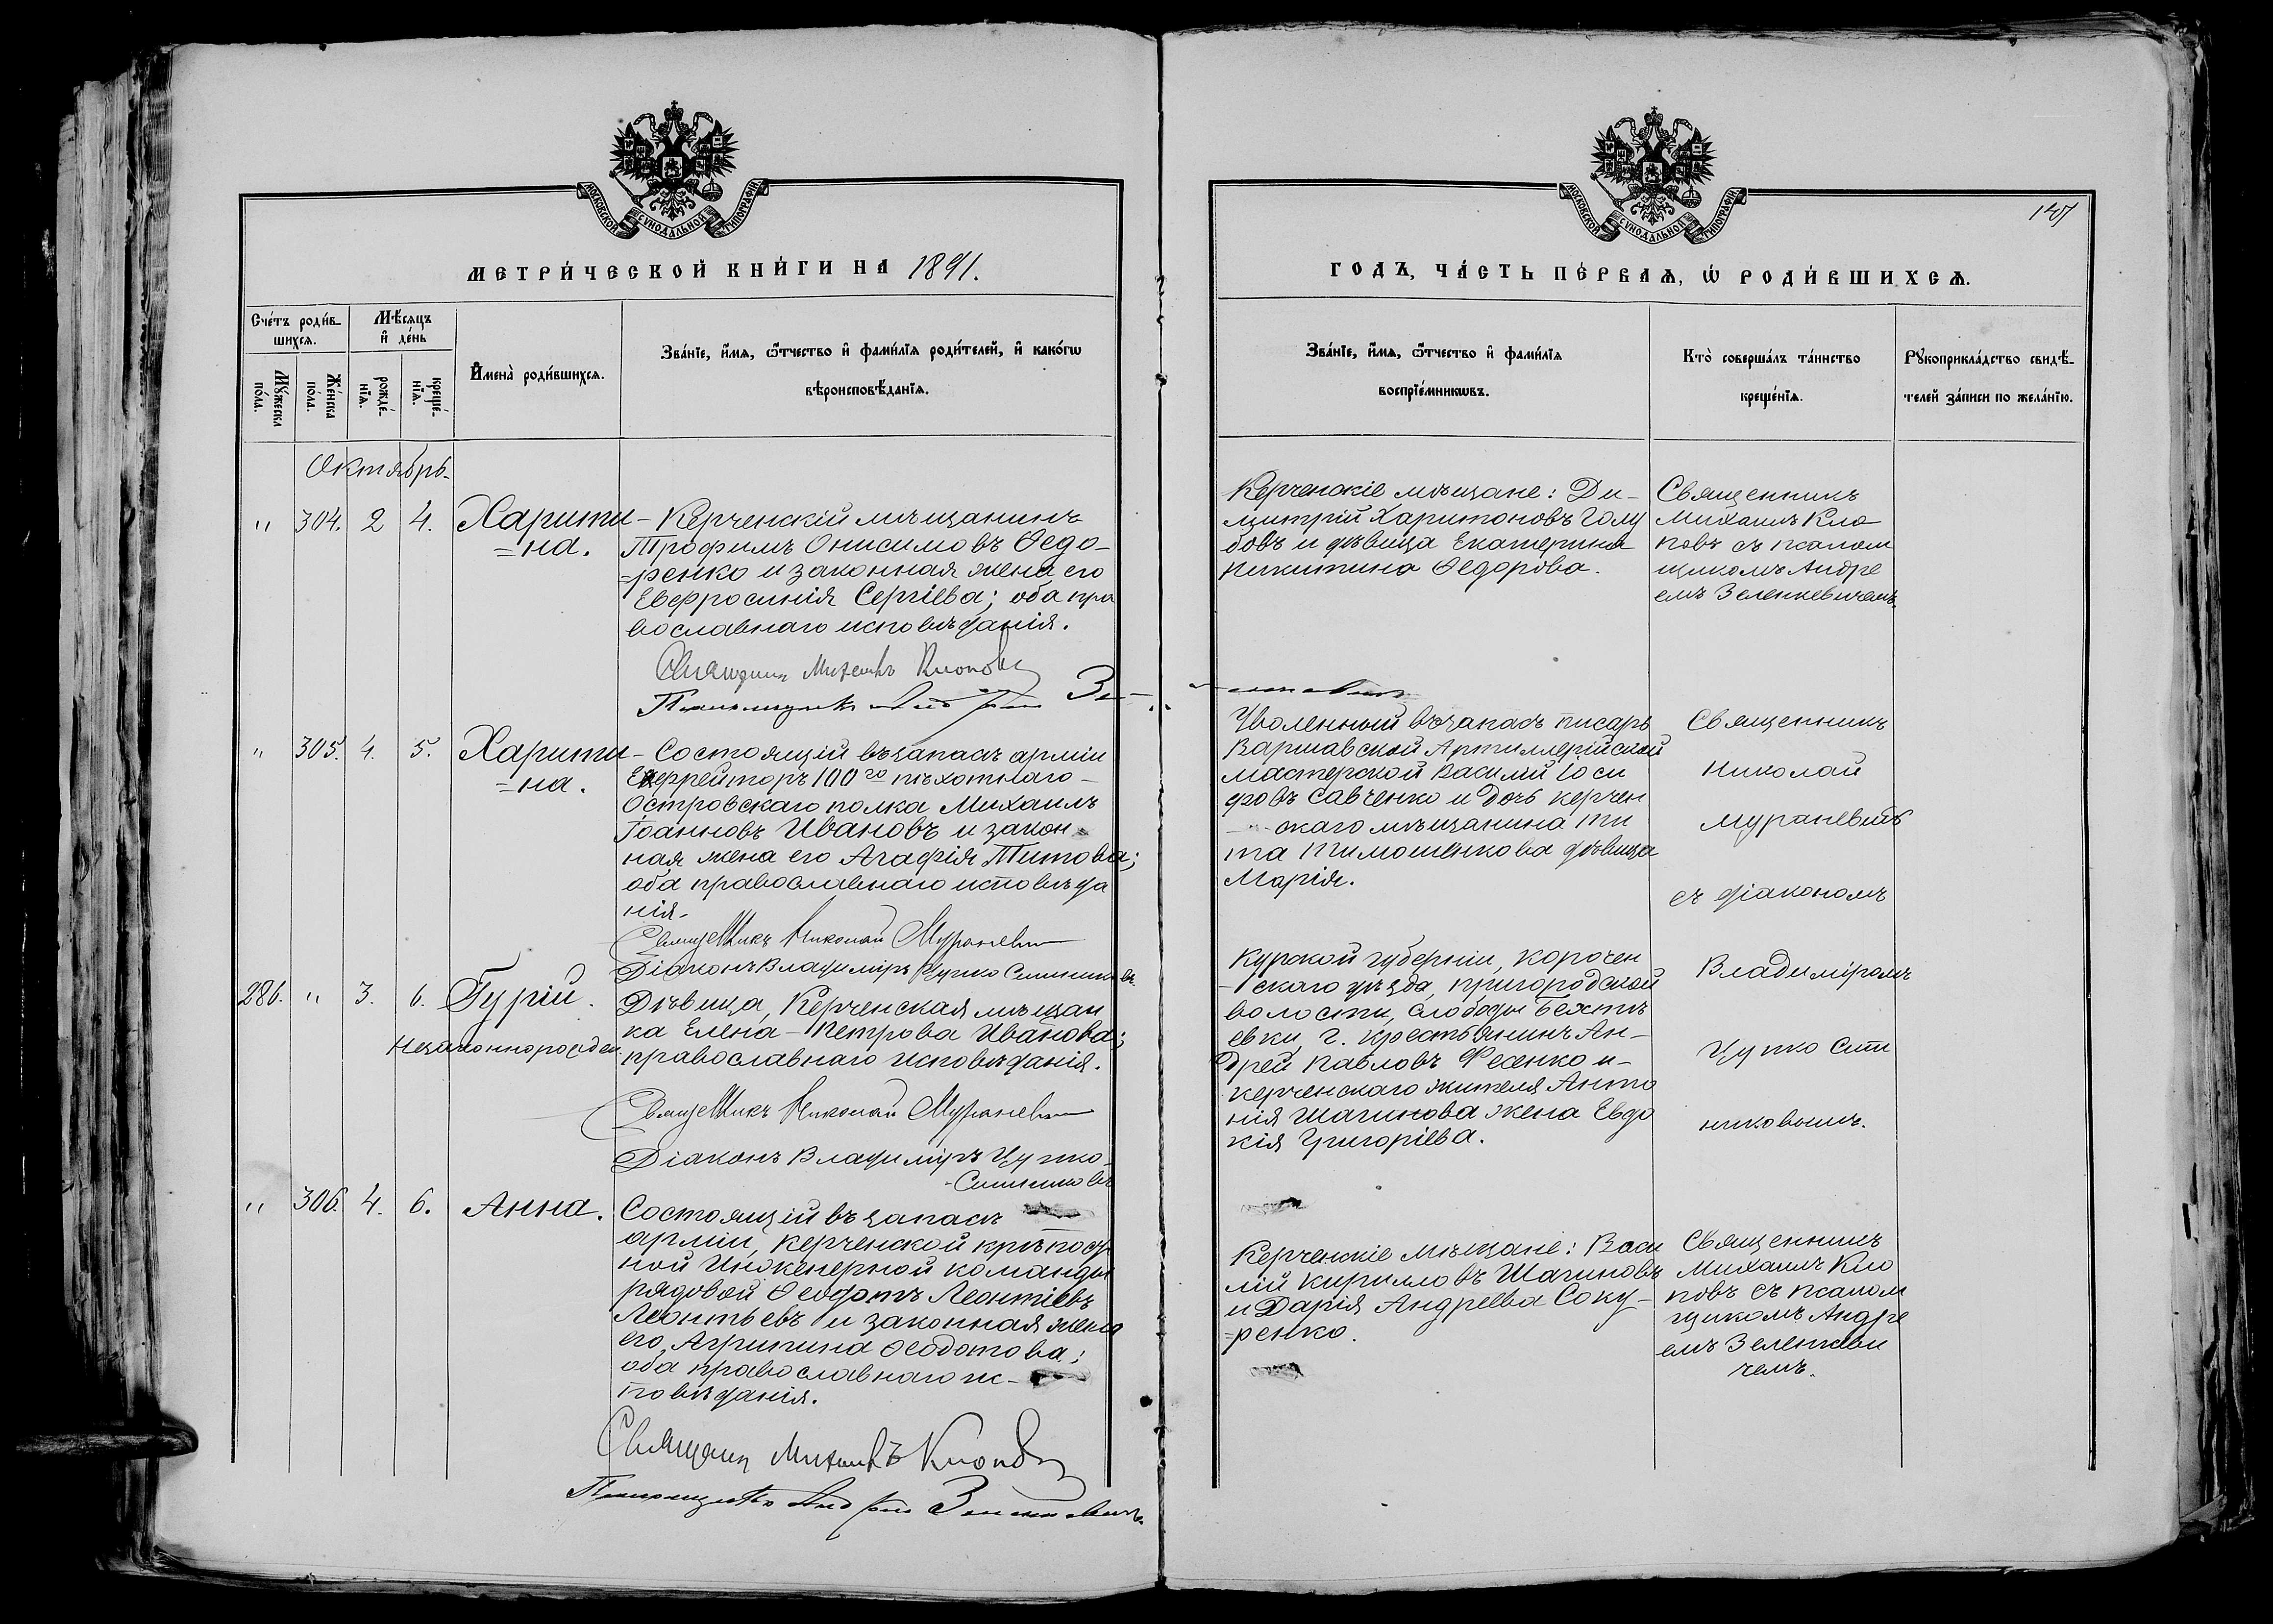 МОСКОВСКОЙ СѴНОДАЛЬНОЙ ТИПОГРАФІИ
МЕТРИ́ЧЕСКОЙ КНИ́ГИ НА 1891.
Сче́тъ роди́в-
шихсѧ.
Мѣ́сѧцъ
и҆ де́нь
Мꙋ́жеска
по́ла.
Же́нска
по́ла.
рожде́-
нїѧ.
креще́-
нїѧ.
И҆мена̀ роди́вшихсѧ.
Зва́нїе, и҆́мѧ, ѻ҆́тчество и҆ фами́лїѧ роди́телей, и҆ како́гѡ
вѣроисповѣ́данїѧ.
Октябрь
" 304. 2 4. Харити-
=на.
Керченскій мѣщанинъ
Трофимъ Онисимовъ Ѳедо-
=ренко и законная жена его
Евфросинія Сергіева; оба пра
вославнаго исповѣданія.
Священникъ Михаилъ Клоповъ
Псаломщикъ Андрей
" 305. 4. 5. Харити-
=на.
Состоящій въ запасѣ арміи
Ефрейторъ 100го пѣхотнаго
Островскаго полка Михаилъ
Іоанновъ Ивановъ и закон
ная жена его Агафія Титова;
оба православнаго исповѣда
нія.
Священникъ Николай Мураневич
Діаконъ Владиміръ Цупко Ситниковъ.
286. " 3. 6. Гурій.
Незаконнорожден
Дѣвица, Керченская мѣщан
ка Елена Петрова Иванова;
православнаго исповѣданія.
Священникъ Николай Мураневич
Діаконъ Владиміръ Цупко-
Ситниковъ
" 306. 4. 6. Анна.
Состоящій въ запасѣ
арміи, Керченской крѣпост
ной Инженерной команды
рядовой Ѳеодотъ Леонтіевъ
Леонтьевъ и законная жена
его, Агрипина Ѳеодотова;
оба православнаго ис-
повѣданія.
Священник Михаилъ Клоповъ
Псаломщикъ Андрей Зеленкевичъ.
МОСКОВСКОЙ СѴНОДАЛЬНОЙ ТИПОГРАФІИ
147
ГОДЪ, ЧА́СТЬ ПЕ́РВАѦ, Ѡ҆ РОДИ́ВШИХСѦ.
Зва́нїе, и҆́мѧ, ѻ҆́тчество и҆ фами́лїѧ
воспрїе́мникѡвъ.
Кто̀ соверша́лъ та́инство
креще́нїѧ.
Рꙋкоприкла́дство свидѣ́-
телей за́писи по жела́нїю.
Керченскіе мѣщане: Ди-
митрій Харитоновъ Голу
бовъ и дѣвица Екатерина
Никитина Ѳедорова.
Священникъ
Михаилъ Кло
повъ съ псалом
щикомъ Андре
емъ Зеленкевичемъ.
Уволенный въ запасъ писарь
Варшавской Артиллерійской
мастерской Василій Іоси
фовъ Савченко и дочь керчен
скаго мѣщанина Ти
та Тимошенкова дѣвица
Марія.
Священникъ
Николай
Мураневичъ
съ діакономъ
Владиміромъ
Цупко Сит
никовымъ.
Курской губерніи, Корочен
скаго уѣзда, пригородской
волости, слободы Бехтѣ
евки, г. крестьянинъ Ан-
дрей Павловъ Фесенко и
керченскаго жителя Анто
нія Шагинова жена Евдо
кія Григоріева.
Керченскіе мѣщане: Васи
лій Кирилловъ Шагиновъ
и Дарія Андреева Соку-
=ренко.
Священникъ
Михаилъ Кло
повъ съ псалом
щикомъ Андре
емъ Зеленкеви
чемъ.